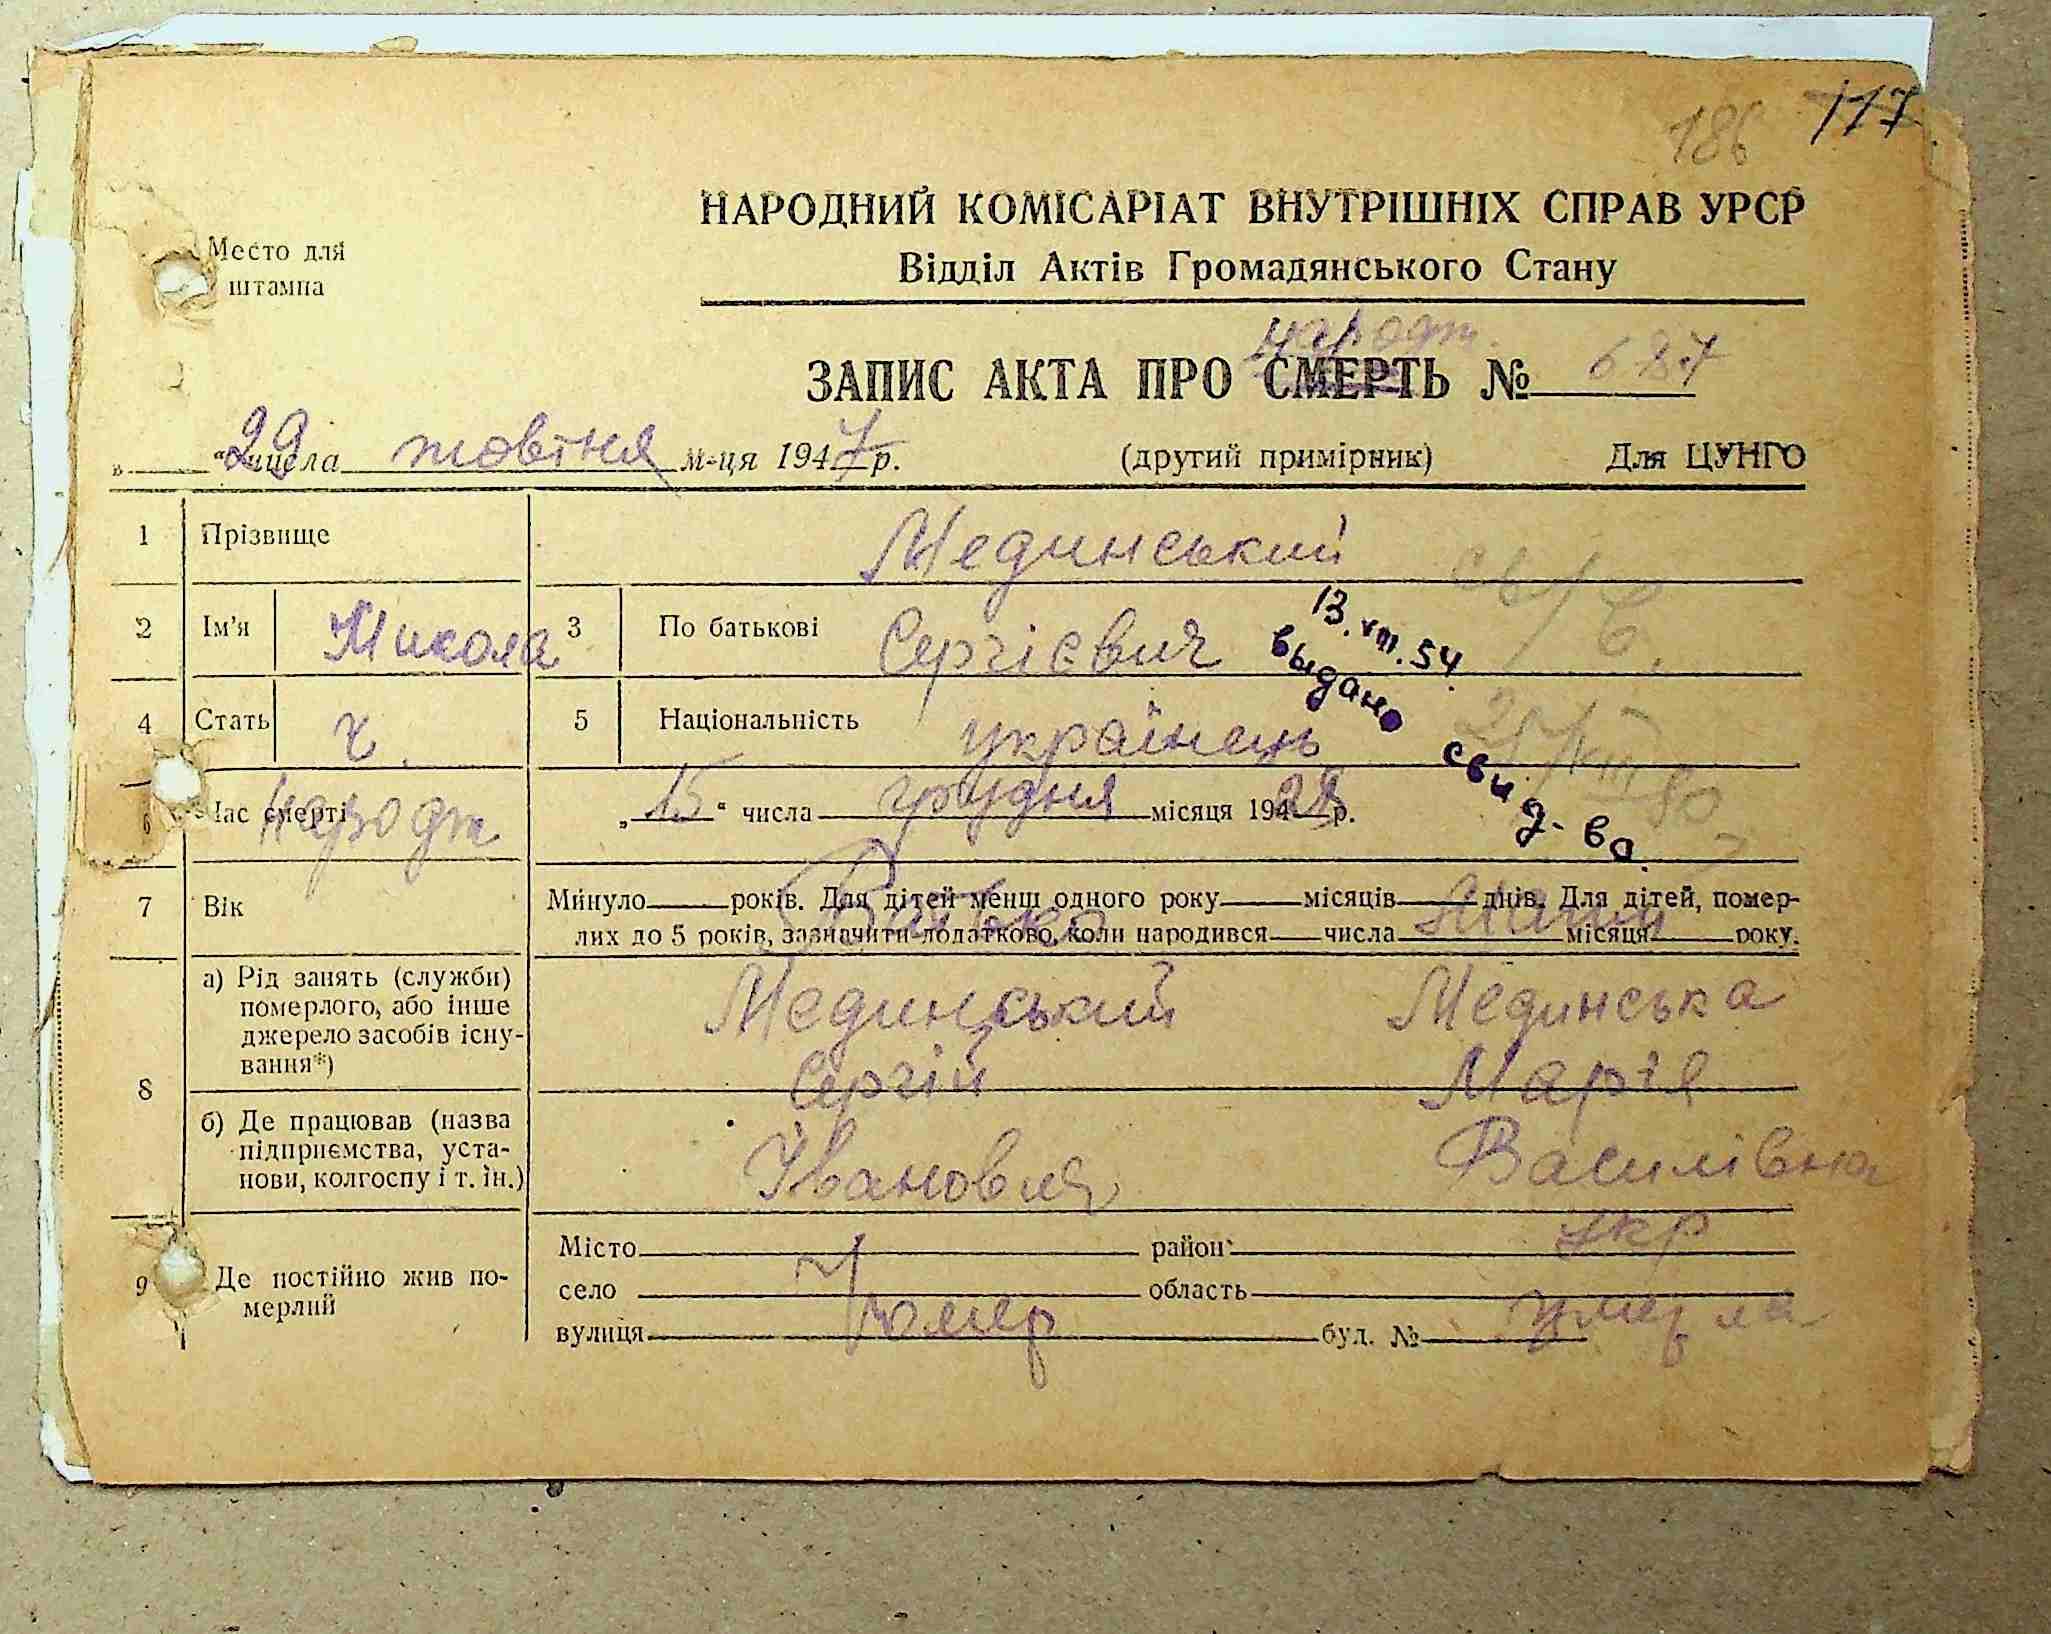 186 117
Место для
штампа
НАРОДНИЙ КОМІСАРІАТ ВНУТРІШНІХ СПРАВ УРСР
Відділ Актів Громадянського Стану
народж.
ЗАПИС АКТА ПРО СМЕРТЬ № 687
„ “ 29 числа жовтня м-ця 1947 р. (другий примірник) Для ЦУНГО
1 Прізвище Мединський
2 Ім'я Микола 3 По батькові Сергієвич
13.VIII.54 выдано свид-во.
4 Стать ч. 5 Національність українець
6 Час смерті народж „15“ числа грудня місяця 1928 р.
7 Вік Минуло років. Для дітей менш одного року місяців днів. Для дітей, помер-
лих до 5 років, зазначити додатково, коли народився числа місяця року.
Батько Мати
8 а) Рід занять (служби)
померлого, або інше
джерело засобів існу-
вання*)
Мединський Мединська
Сергій Марія
б) Де працював (назва
підприємства, уста-
нови, колгоспу і т. ін.)
Іванович Василівна
9 Де постійно жив по-
мерлий
Місто район укр
село область
вулиця буд. № умерла